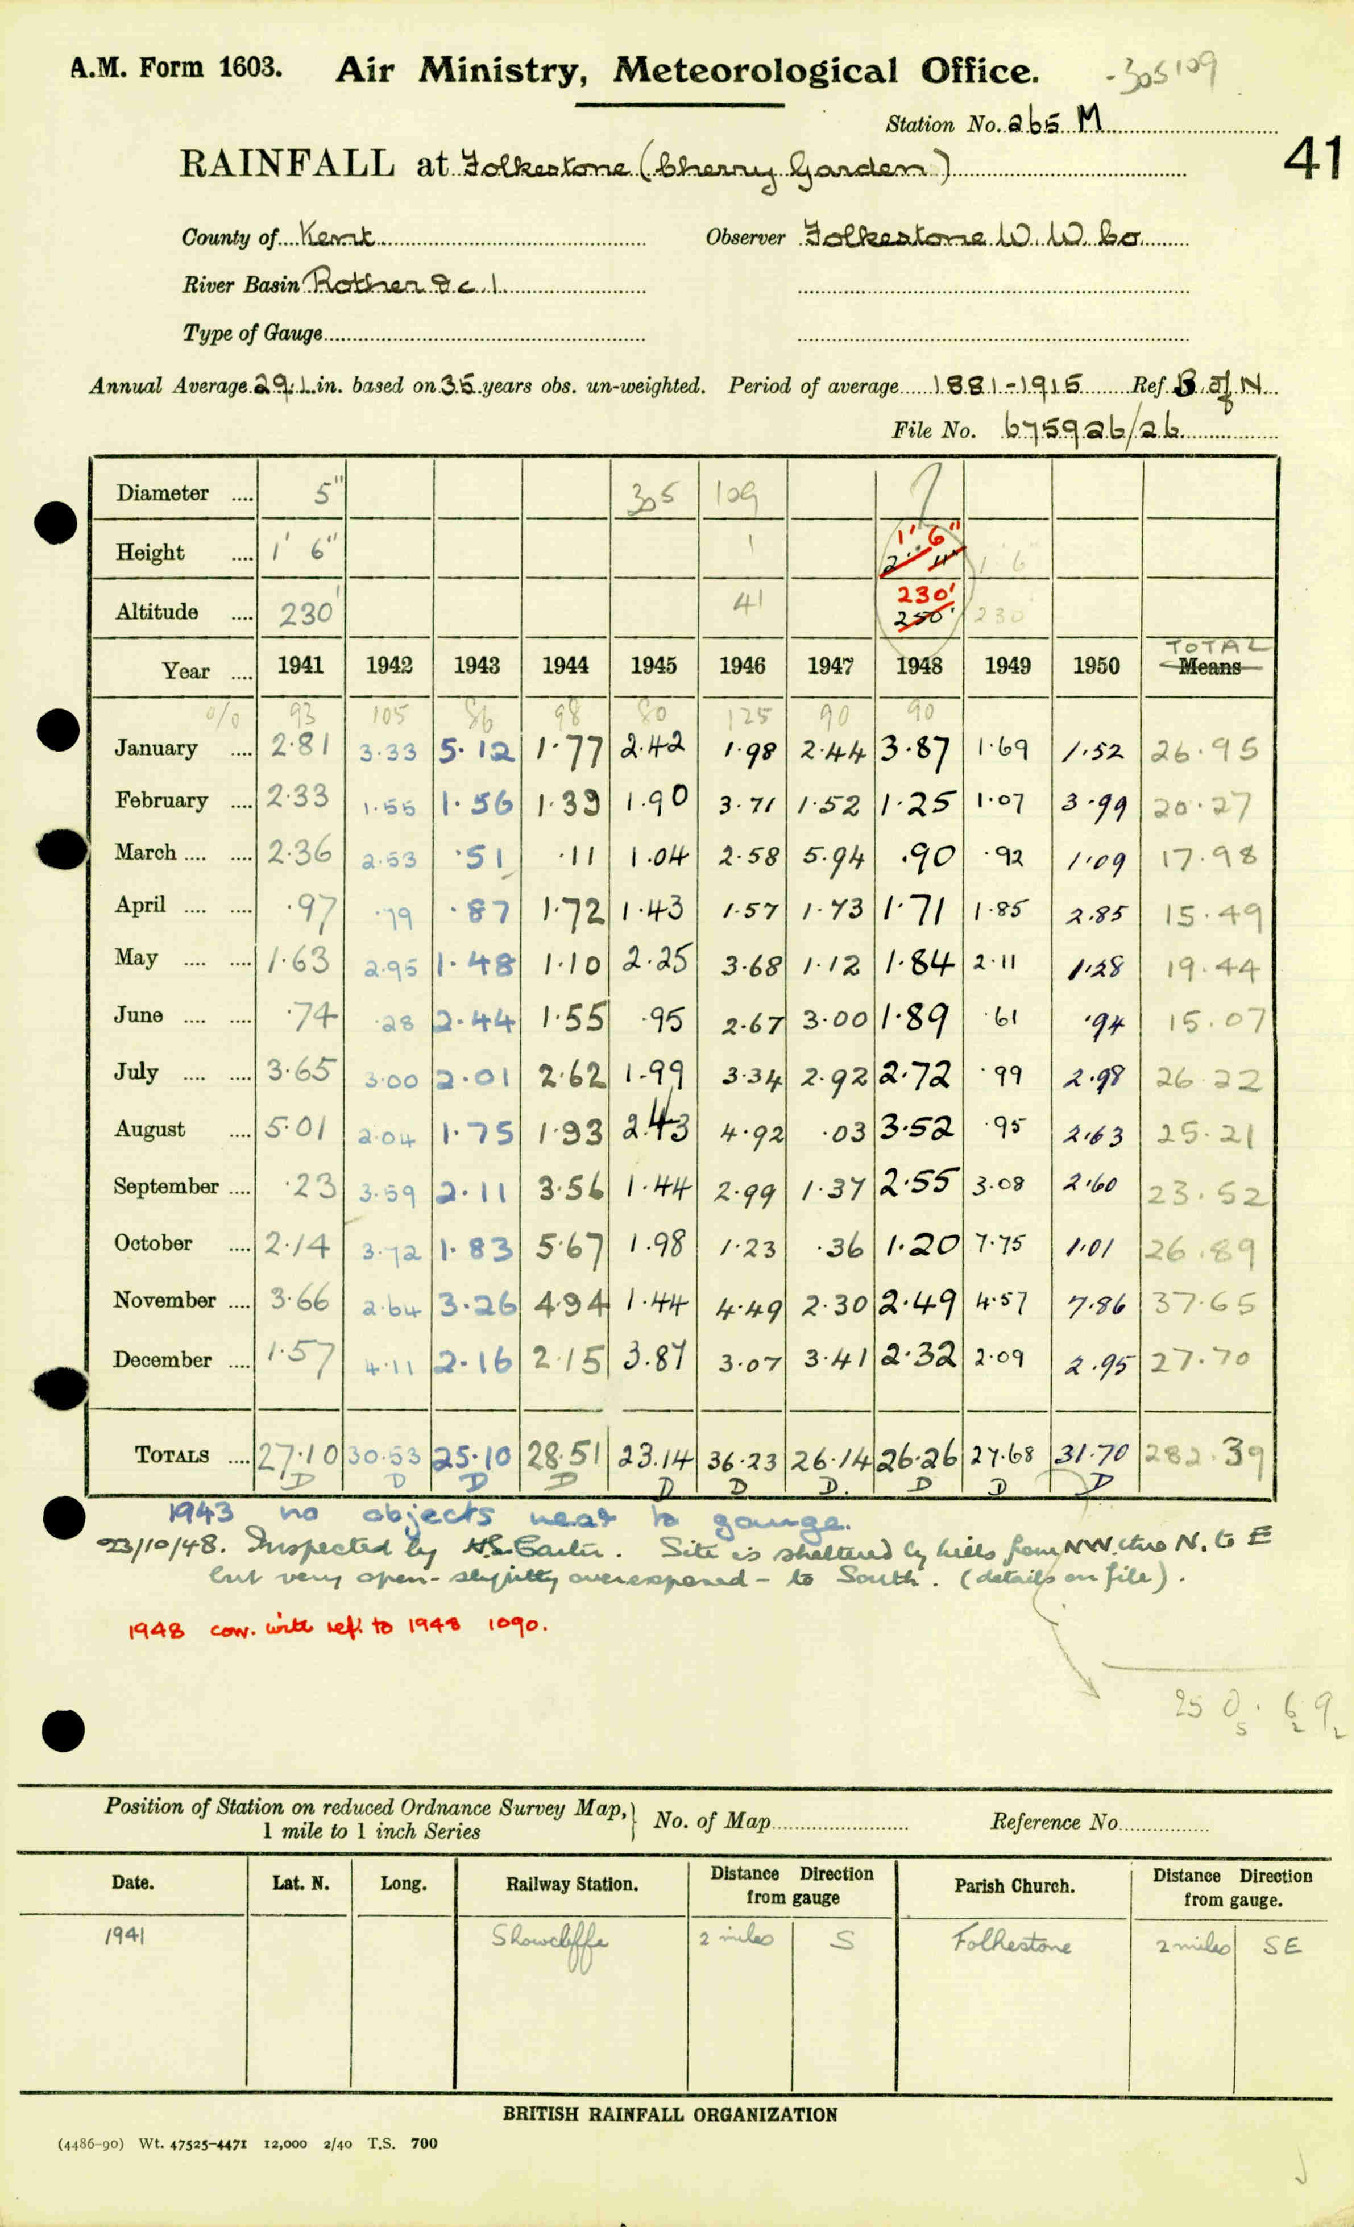 A.M. Form 1603. Air Ministry, Meteorological Office. -305109
Station No. 265 M
41
RAINFALL at Folkestone (Cherry Garden)
County of Kent Observer Folkestone W. W. Co
River Basin Rother &c 1.
Type of Gauge
Annual Average 29.1 in. based on 35 years obs. un-weighted. Period of average 1881-1915 Ref B of N
File No. 675926/26
Diameter .... 5" 305 109
Height .... 1' 6" 1 1' 6" 2' 4" 1' 6"
Altitude .... 230' 41 230' 250' 230
TOTAL
Year .... 1941 1942 1943 1944 1945 1946 1947 1948 1949 1950 Means
% 93 105 86 98 80 125 90 90
January .... 2.81 3.33 5.12 1.77 2.42 1.98 2.44 3.87 1.69 1.52 26.95
February .... 2.33 1.55 1.56 1.39 1.90 3.71 1.52 1.25 1.07 3.99 20.27
March .... .... 2.36 2.53 .51 .11 1.04 2.58 5.94 .90 .92 1.09 17.98
April .... .... .97 .79 .87 1.72 1.43 1.57 1.73 1.71 1.85 2.85 15.49
May .... .... 1.63 2.95 1.48 1.10 2.25 3.68 1.12 1.84 2.11 1.28 19.44
June .... .... .74 .28 2.44 1.55 .95 2.67 3.00 1.89 .61 .94 15.07
July .... .... 3.65 3.00 2.01 2.62 1.99 3.34 2.92 2.72 .99 2.98 26.22
August .... 5.01 2.04 1.75 1.93 2.43 4.92 .03 3.52 .95 2.63 25.21
September .... .23 3.59 2.11 3.56 1.44 2.99 1.37 2.55 3.08 2.60 23.52
October .... 2.14 3.72 1.83 5.67 1.98 1.23 .36 1.20 7.75 1.01 26.89
November .... 3.66 2.64 3.26 4.94 1.44 4.49 2.30 2.49 4.57 7.86 37.65
December .... 1.57 4.11 2.16 2.15 3.87 3.07 3.41 2.32 2.09 2.95 27.70
TOTALS .... 27.10 30.53 25.10 28.51 23.14 36.23 26.14 26.26 27.68 31.70 282.39
D D D D D D D. D D D
1943 no objects near to gauge.
23/10/48. Inspected by Site is sheltered by hills from NW. thro N. to E
but very open - slightly overexposed - to South. (details on file).
1948 corr. with ref. to 1948 1090.
Position of Station on reduced Ordnance Survey Map,
1 mile to 1 inch Series No. of Map Reference No.
Date. Lat. N. Long. Railway Station. Distance Direction from gauge Parish Church. Distance Direction from gauge.
1941 Shorncliffe 2 miles S Folkestone 2 miles SE
BRITISH RAINFALL ORGANIZATION
(4486-90) Wt. 47525-4471 12,000 2/40 T.S. 700